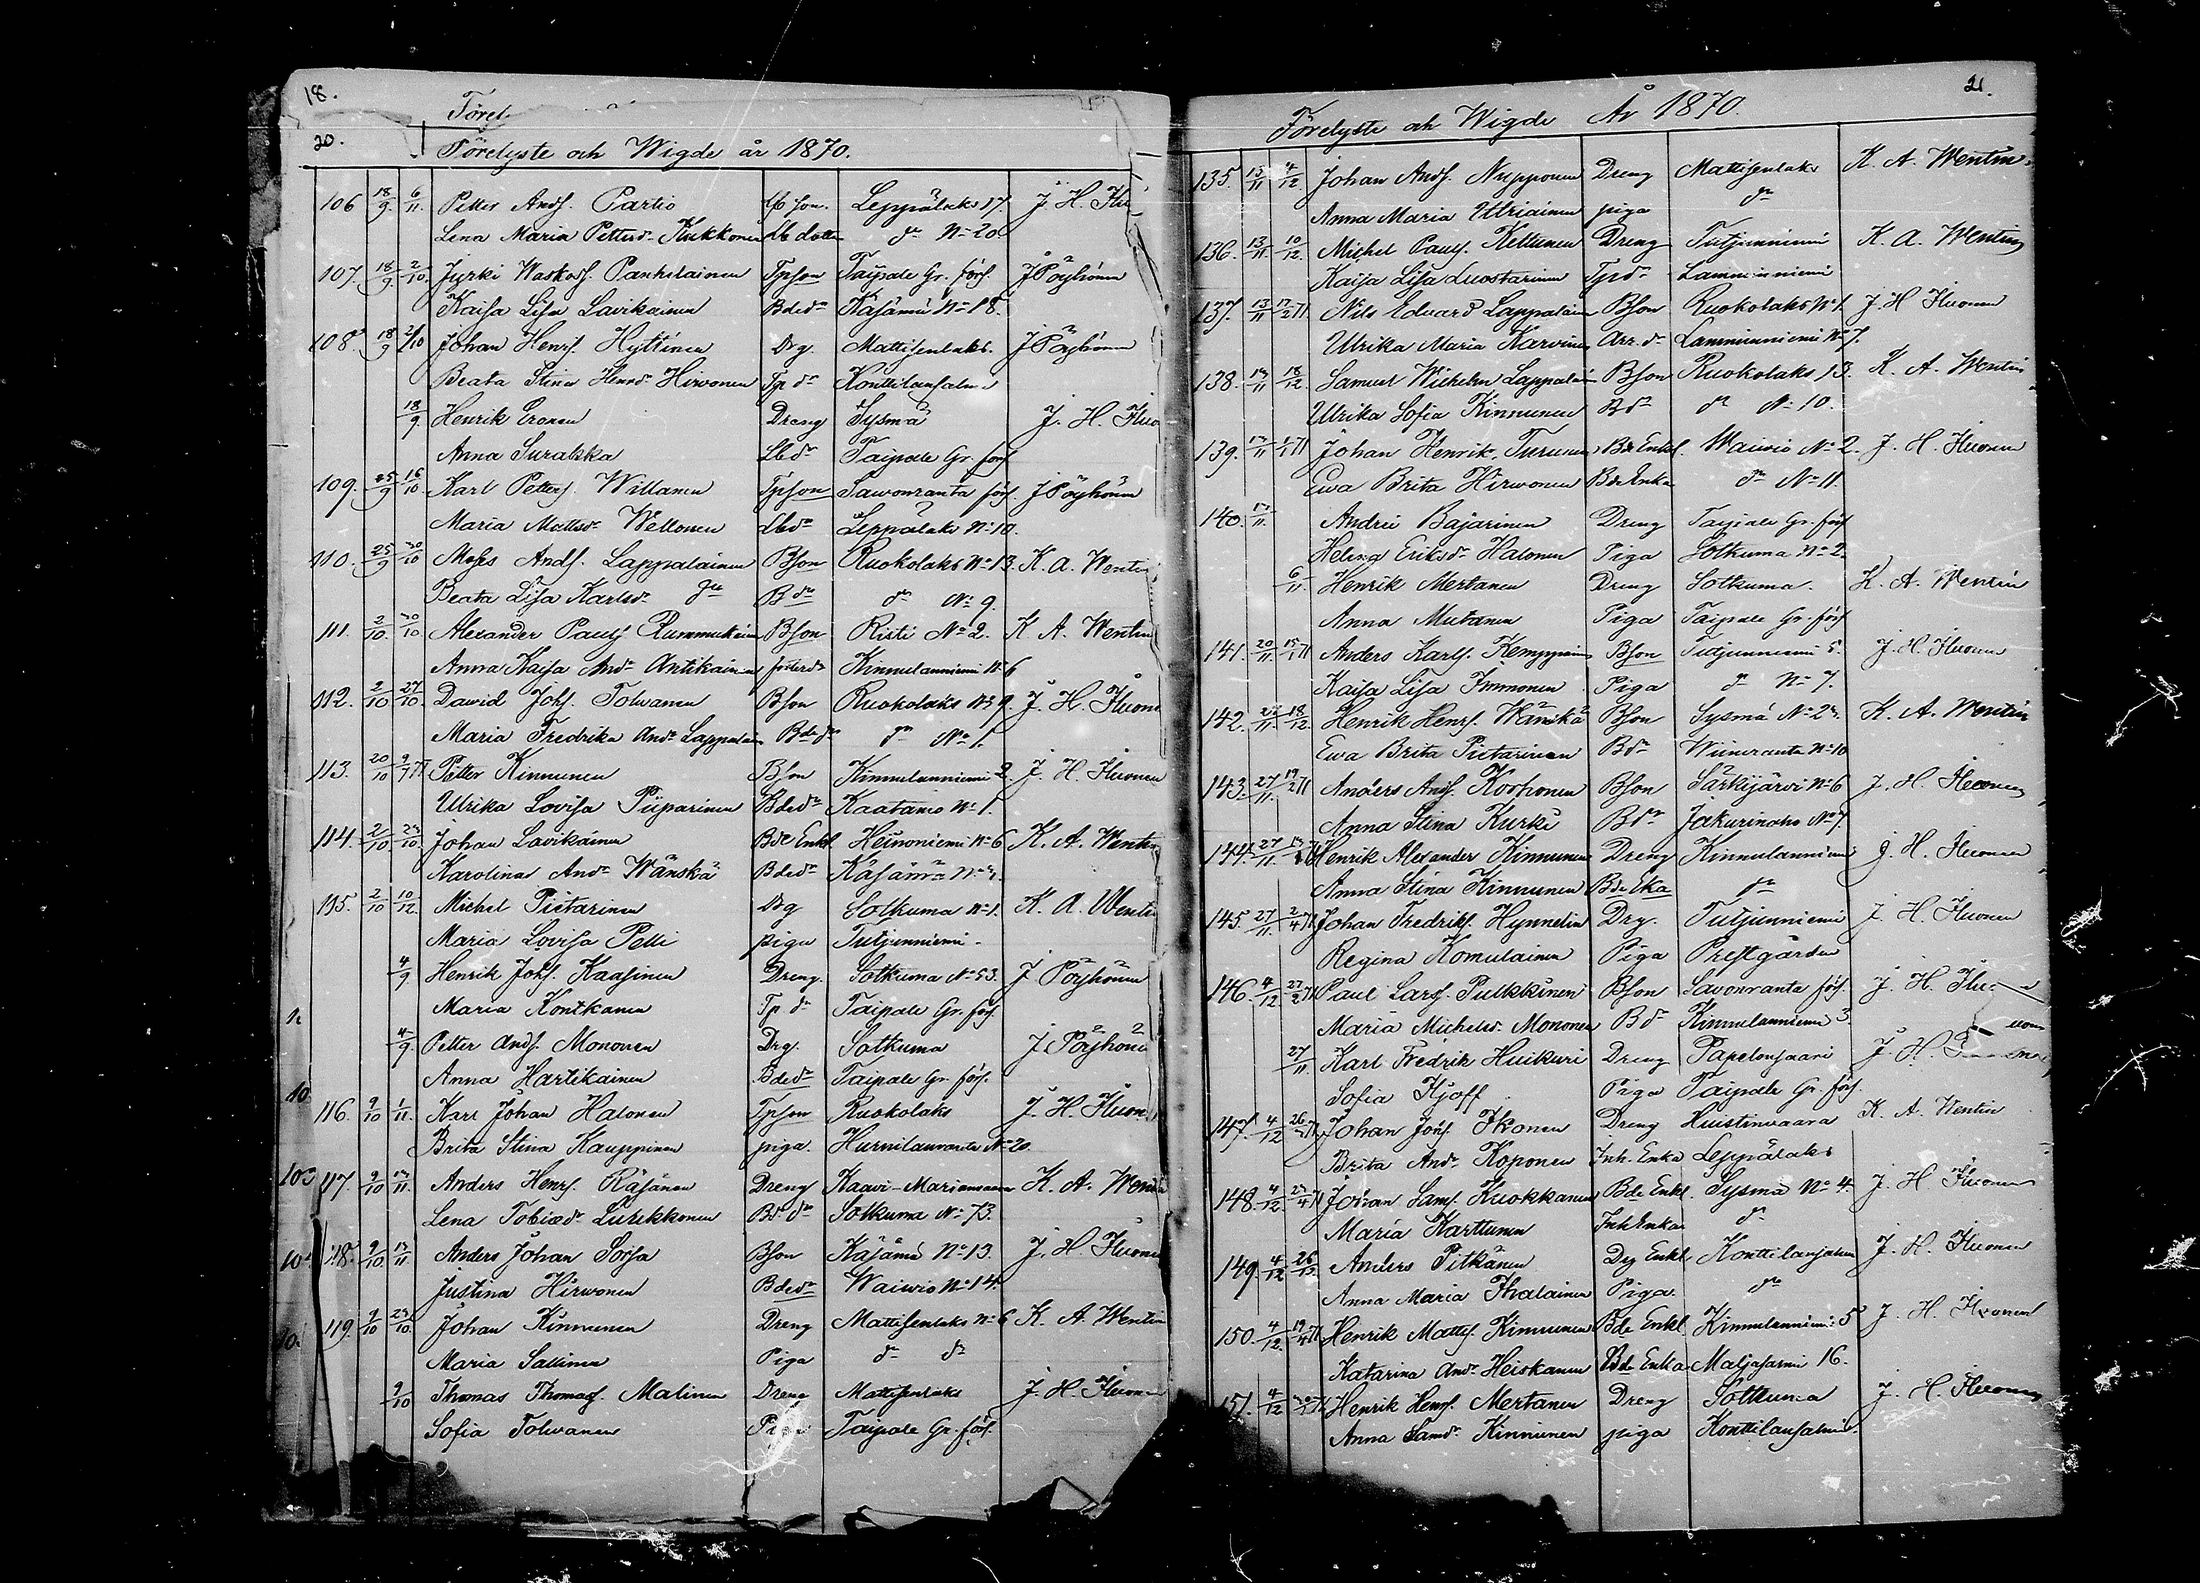 18.
Förel
20.
Förelyste och Wigde år 1870.
106 18/9 6/11 Petter Ands. Partio Lb son. Leppälaks 17. J. H. Flu
Lena Maria Pettersdr Kukkonen Lb dotter dn No 20.
107. 18/9 2/10 Jyrki Waskos. Panhilainen Tpson Taipale Gr. förs. J Pöyhönen
Kaisa Lisa Lavikainen Bdedr Käsämä No 18.
108. 18/9 21/10 Johan Henrs. Hyttinen Drg. Mattisenlaks. J Pöyhönen
Beata Stina Henrdr Hirvonen Tp dr Konttilansalmi
18/9 Henrik Eronen Dreng Sysmä J. H. Fluo
Anna Surakka Lbdr Taipale Gr. förs
109. 25/9 16/10 Karl Petters. Willanen Tpson Sawonranta förs. J Pöyhönen
Maria Mattsdr Wellonen Lbdr Leppälaks No 10.
110. 25/9 30/10 Moses Ands. Lappalainen Bson Ruokolaks No 13. K. A. Wentin
Beata Lisa Karlsdr dn B dr dn No 9.
111. 2/10 30/10 Alexander Pauls Rummukainen Bson Risti No 2. K A. Wentin
Anna Kaisa Andr Antikainen fosterdr Kinnulanniemi No 6
112. 2/10 27/10 David Johs. Tolwanen Bson Ruokolaks No 9. J. H. Fluone
Maria Fredrika Andr Lappalain Bde dr dn No 1.
113. 20/10 9/7 71 Petter Kinnunen Bson Kinnulanniemi 2. J. H. Fluonen
Ulrika Lovisa Piiparinen Bdedr Kaatamo No 1.
114. 2/10 23/10 Johan Lavikainen Bde Enkl Heinoniemi No 6 K. A. Wentin
Karolina Andr Wänskä Bdedr Käsämä No 3.
115. 2/10 10/12 Michel Pietarinen Drg Sotkuma No 1. K. A. Wentin
Maria Lovisa Pelli piga Tutjunniemi
4/9 Henrik Johs. Kaasinen Dreng. Sotkuma No 53. J Pöyhönen
Maria Kontkanen Tp dr Taipale Gr. förs
4/9 Petter Ands. Mononen Drg. Sotkuma J. Pöyhönen
Anna Hartikainen Bdedr Taipale Gr. förs.
116. 9/10 1/11 Karl Johan Halonen Tpson Ruokolaks J. H. Fluon
Brita Stina Kauppinen piga. Hurnilanranta No 20
117. 9/10 13/11 Anders Henrs. Räsänen Dreng Kaavi-Mariansaari K. A. Wentin
Lena Tobiædr Lurikkonen Bd dr Sotkuma No 73.
118. 9/10 13/11 Anders Johan Sorsa Bson Käsämä No 13. J. H. Fluone
Justina Hirwonen Bdedr Waiwio No 14.
119. 9/10 23/10 Johan Kinnunen Dreng Mattisenlaks No 6 K. A. Wentin
Maria Sallinen Piga dn dn
9/10 Thomas Thomass. Malinen Dreng Mattisenlaks J. H. Fluonen
Sofia Tolwanen Piga Taipale Gr. förs.
21.
Förelyste och Wigde År 1870.
135. 13/11 4/12 Johan Ands. Nupponen Dreng Mattisenlaks K. A. Wentin
Anna Maria Ulriainen piga dn
136. 13/11 10/12 Michel Pauls. Kettunen Dreng Tutjunniemi K. A. Wentin
Kaisa Lisa Luostarinen Tpdr Lamminniemi
137. 13/11 12/2 71 Nils Edvard Lappalain Bson Ruokolaks No 1. J. H Fluonen
Ulrika Maria Karvinen Arr. dr Lamminniemi No 7.
138. 13/11 18/12 Samuel Wilhelm Lappalain Bson Ruokolaks 13. K. A. Wentin
Ulrika Sofia Kinnunen Bdr dn No 10.
139. 13/11 1/1 71 Johan Henrik Turunen Bde Enkl. Waiwio No 2. J. H. Fluonen
Ewa Brita Hirwonen Bde Enka dn No 11.
140. 13/11 Andrei Bajarinen Dreng Taipale Gr. förs
Helena Eriksdr Halonen Piga Sotkuma No 2
6/11 Henrik Mertanen Dreng Sotkuma. K. A. Wentin
Anna Mutanen Piga Taipale Gr. förs
141. 20/11 15/1 71 Anders Karls. Kemppainen Bson Tutjunniemi 5. J. H. Fluonen
Kaisa Lisa Immonen Piga dn No 7.
142. 27/11 18/12 Henrik Henrs. Wänskä Bson Sysmä No 23. K. A. Wentin
Ewa Brita Pietarinen Bdr Wiinranta No 10
143. 27/11 19/2 71 Anders Ands. Korhonen Bson Särkijärvi No 6 J. H. Fluonen
Anna Stina Kurki Bdr Jakurinaho No 7.
144. 27/11 Henrik Alexander Kinnunen Dreng Kinnulanniemi J. H. Fluonen
Anna Stina Kinnunen Bde Eka dn
145. 27/11 2/4 71 Johan Fredriks. Hymnelin Drg. Tutjunniemi J. H. Fluonen
Regina Komulainen Piga Prestgården
146. 4/12 27/2 71 Paul Lars. Pulkkinen Bson Savonranta förs. J. H. Flu
Maria Michelsdr Mononen Bdr Kinnulanniemi 3.
27/11 Karl Fredrik Huikuri Dreng Papelonsaari J. H.
Sofia Kjoff Piga Taipale Gr. förs.
147. 4/12 26/ 71 Johan Johs. Ikonen Dreng Huistinvaara K. A. Wentin
Brita Andr Koponen Inh. Enka Leppälaks
148. 4/12 23/4 71 Johan Sams. Kuokkanen Bde Enkl. Sysmä No 4. J. H Fluonen
Maria Karttunen Inh Enka dn
149. 4/12 26/12 Anders Pitkänen Drg Enkl Konttilansalmi J. H. Fluonen
Anna Maria Ihalainen Piga dn
150. 4/12 19/4 71 Henrik Matts. Kinnunen Bde Enkl. Kinnulanniemi 5 J. H. Fluonen
Katarina Andr Heiskanen Bde Enka Maljasarmi 16.
151. 4/12 Henrik Henrs. Mertanen Dreng Sotkuma J. H. Fluonen
Anna Samdr Kinnunen piga Konttilansalmi.